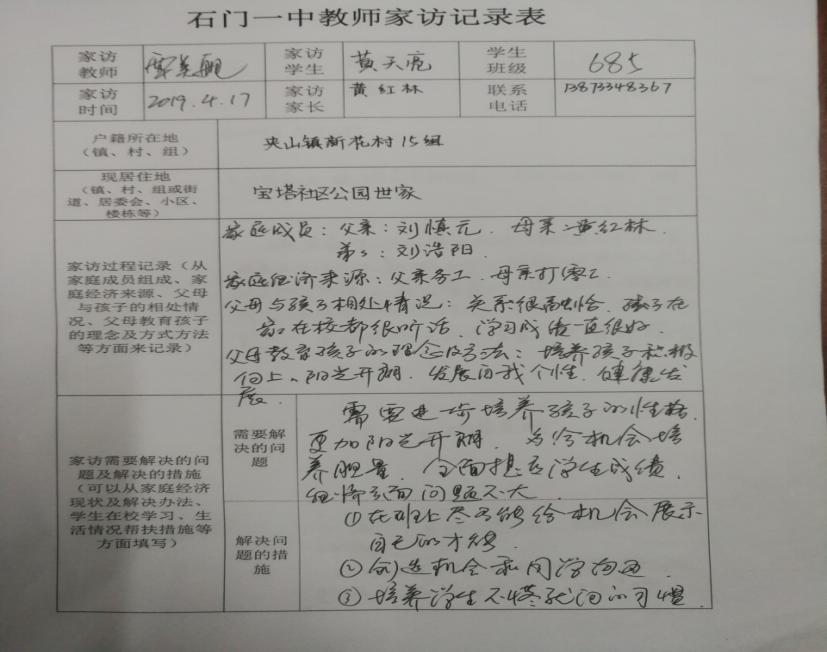 石门一中教师家访记录表
家访教师 家访学生 黄天亮 学生班级 685
家访时间 2019.4.17 家访家长 黄红林 联系电话 13873348367
户籍所在地（镇、村、组） 夹山镇新花村15组
现居住地（镇、村、组或街道、居委会、小区、楼栋等） 宝塔社区公园世家
家访过程记录（从家庭成员组成、家庭经济来源、父母与孩子的相处情况、父母教育孩子的理念及方式方法等方面来记录）
家庭成员：父亲：刘慎元 母亲：黄红林
弟弟：刘浩阳
家庭经济来源：父亲务工 母亲打零工
父母与孩子相处情况：关系很融恰 孩子在
家在校都很听话 学习成绩一直很好
父母教育孩子的理念及方法：培养孩子积极
向上、阳光开朗 发展自我个性 健康发
展
家访需要解决的问题及解决的措施（可以从家庭经济现状及解决办法、学生在校学习、生活情况帮扶措施等方面填写）
需要解决的问题
需要进一步培养孩子的性格
更加阳光开朗 多给机会培
养胆量 全面提高学生成绩
经济方面问题不大
解决问题的措施
①在班上尽可能给机会展示
自己的才能
②创造机会和同学沟通
③培养学生不懂就问的习惯